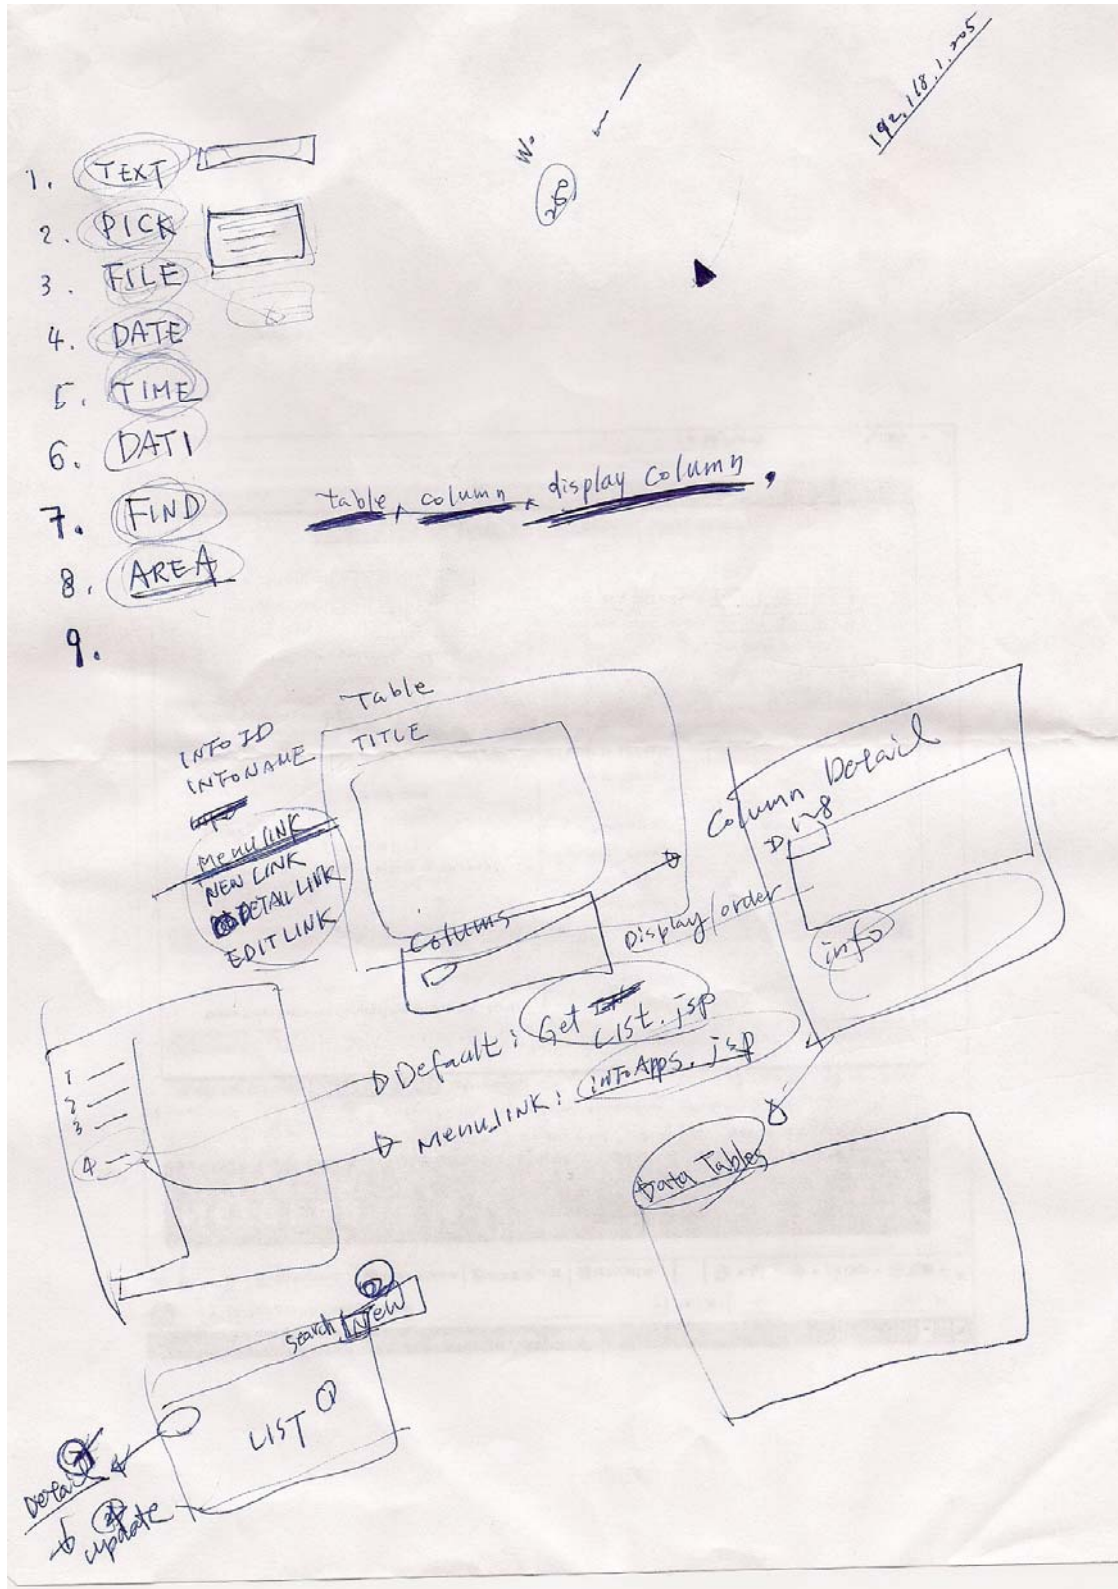 192.168.1.205
W.
250
1. TEXT
2. PICK
3. FILE
4. DATE
5. TIME
6. DATI
7. FIND
8. AREA
9.
table, column, display column.
Table
TITLE
INFO ID
INFONAME
Menu LINK
NEW LINK
DETAIL LINK
EDIT LINK
Colums
Display/order
Column Detail
info
1
2
3
4
Default: Get List.jsp
Menu LINK: infoApps.jsp
Data Tables
search/New
LIST 1
Detail
4
update